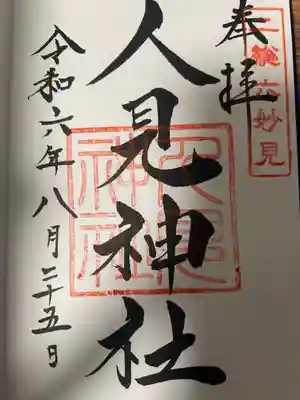 奉拝
上総六妙見
人見神社
人見神社
令和六年八月二十五日